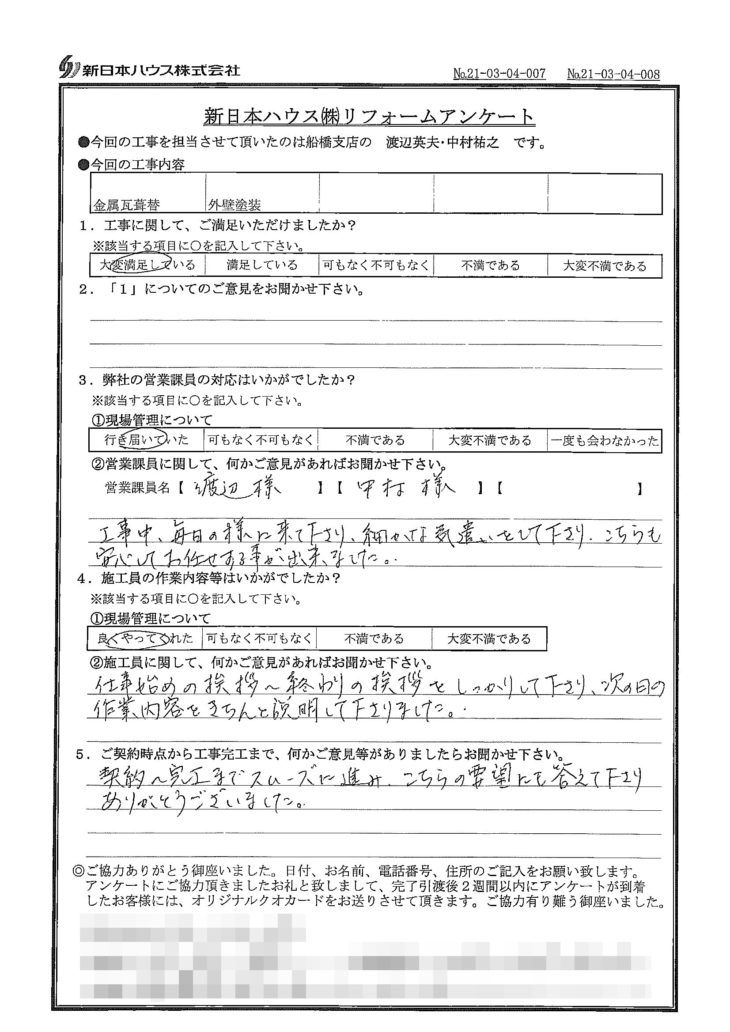 新日本ハウス株式会社
No.21-03-04-007 No.21-03-04-008
新日本ハウス㈱リフォームアンケート
●今回の工事を担当させて頂いたのは船橋支店の 渡辺英夫・中村祐之 です。
●今回の工事内容
金属瓦葺替 外壁塗装
1．工事に関して、ご満足いただけましたか？
※該当する項目に○を記入して下さい。
大変満足している 満足している 可もなく不可もなく 不満である 大変不満である
2．「1」についてのご意見をお聞かせ下さい。
3．弊社の営業課員の対応はいかがでしたか？
※該当する項目に○を記入して下さい。
①現場管理について
行き届いていた 可もなく不可もなく 不満である 大変不満である 一度も会わなかった
②営業課員に関して、何かご意見があればお聞かせ下さい。
営業課員名【 渡辺様 】【 中村様 】【 】
工事中、毎日の様に来て下さり、細かな気遣いをして下さり、こちらも
安心してお任せする事が出来ました。
4．施工員の作業内容等はいかがでしたか？
※該当する項目に○を記入して下さい。
①現場管理について
良くやってくれた 可もなく不可もなく 不満である 大変不満である
②施工員に関して、何かご意見があればお聞かせ下さい。
仕事始めの挨拶～終わりの挨拶をしっかりして下さり、次の日の
作業内容をきちんと説明して下さりました。
5．ご契約時点から工事完工まで、何かご意見等がありましたらお聞かせ下さい。
契約～完工までスムーズに進み、こちらの要望にも答えて下さり
ありがとうございました。
◎ご協力ありがとう御座いました。日付、お名前、電話番号、住所のご記入をお願い致します。
アンケートにご協力頂きましたお礼と致しまして、完了引渡後2週間以内にアンケートが到着
したお客様には、オリジナルクオカードをお送りさせて頂きます。ご協力有り難う御座いました。